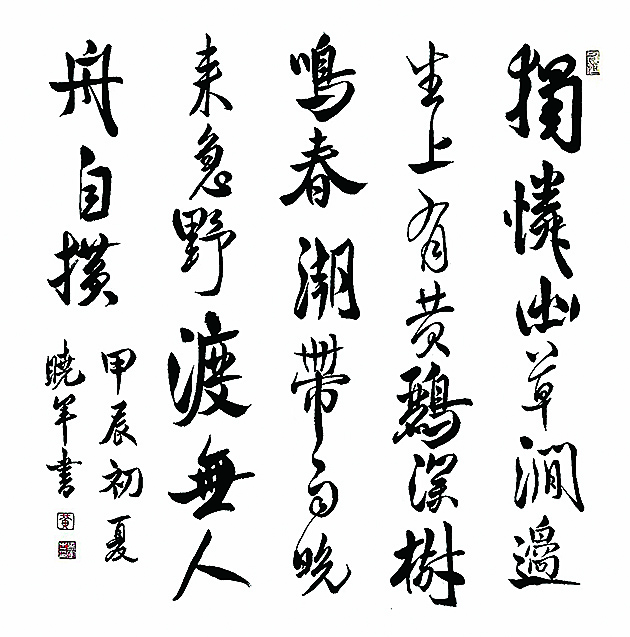 獨憐幽草澗邊
生上有黄鸝深樹
鳴春潮帶雨晚
来急野渡無人
舟自横
甲辰初夏
曉军書